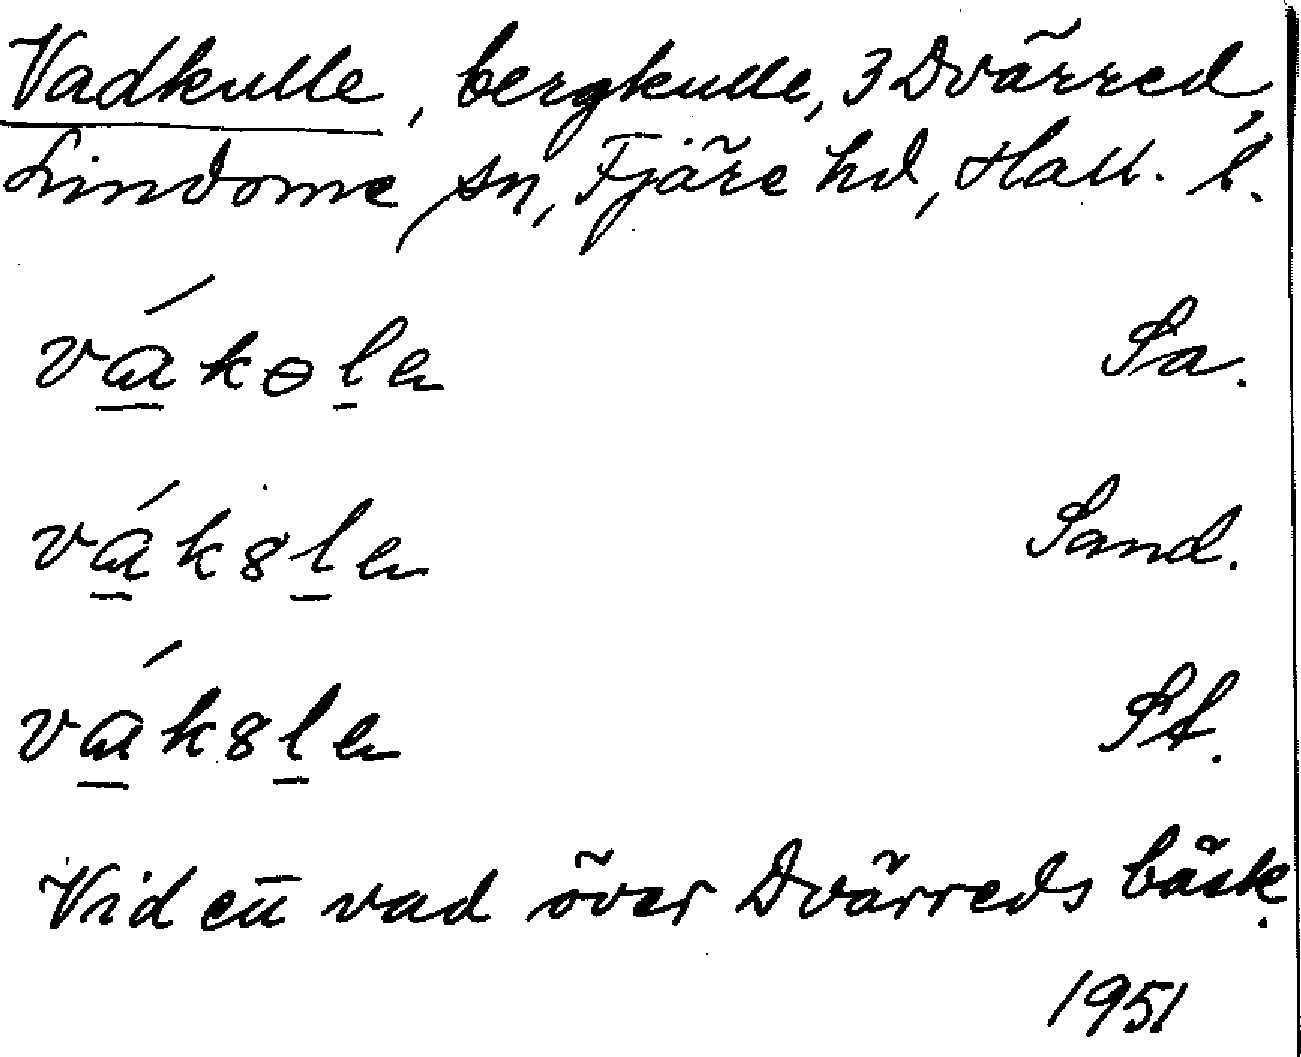 Vadkulle, bergkulle, 3 Dvärred,
Lindome sn, Fjäre hd, Hall. l.
vákɵle Sa.
vák8le Sand.
vák8le St.
Vid ett vad över Dvärreds bäck.
1951